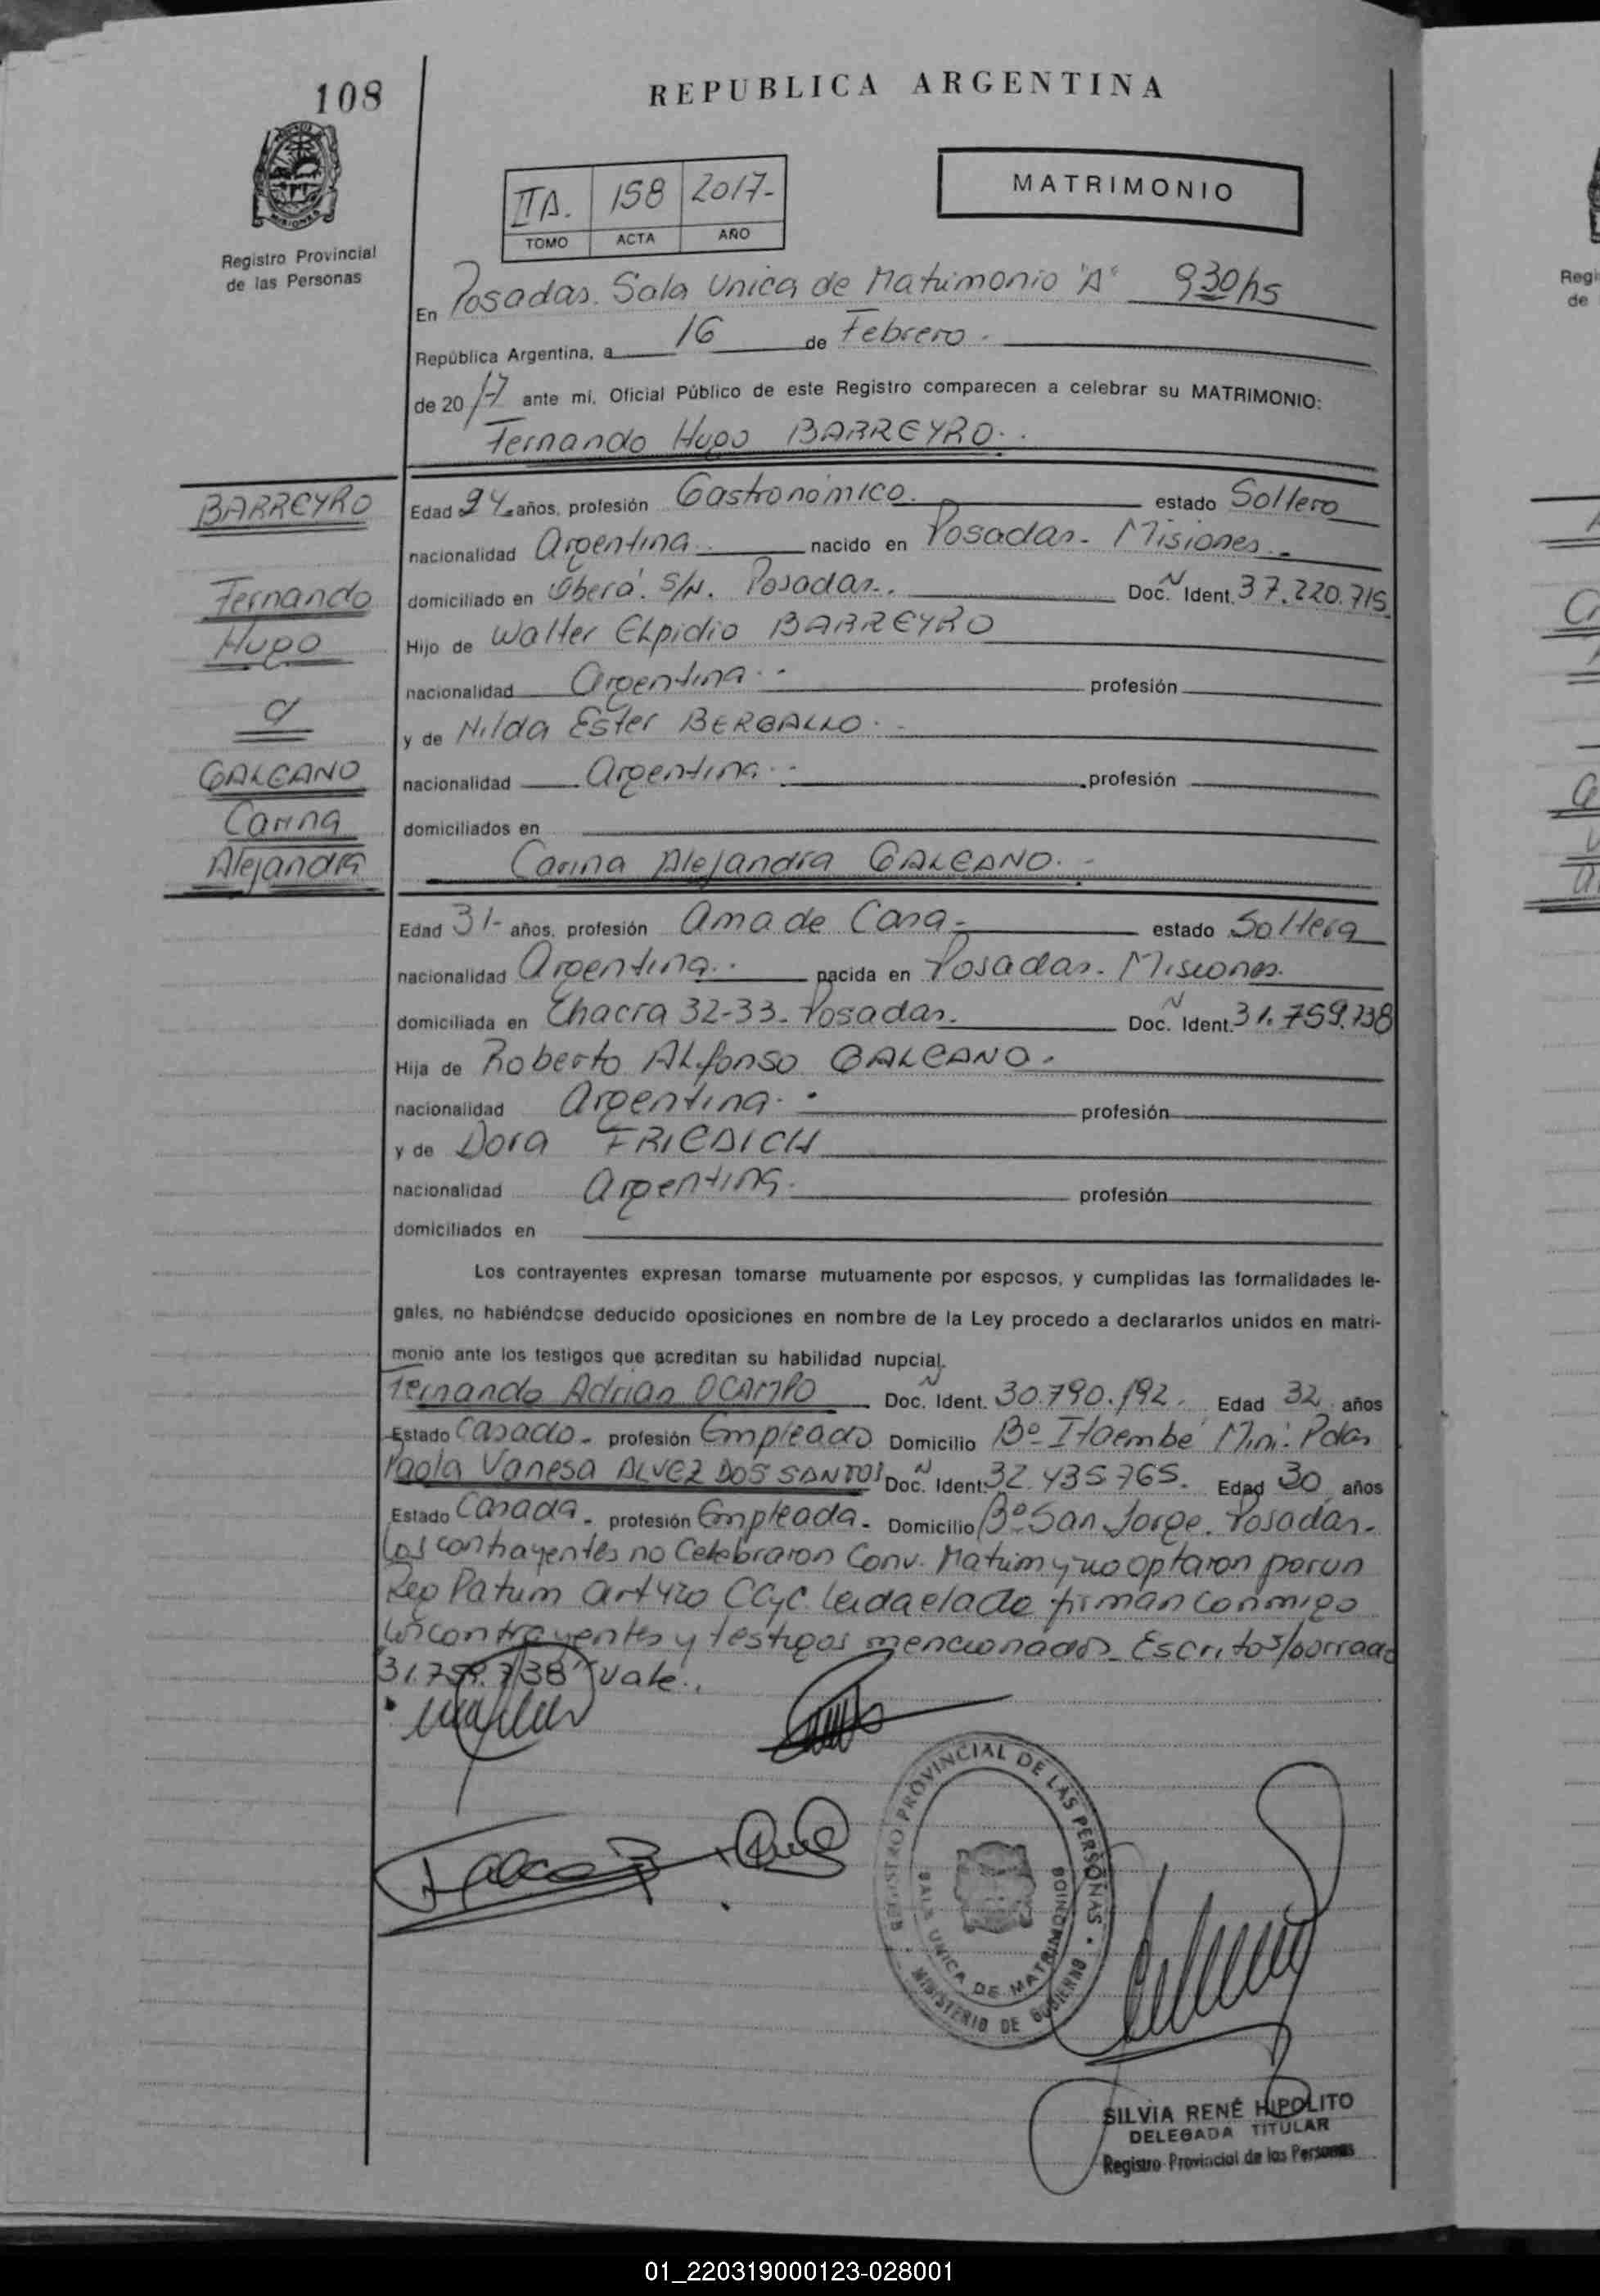 108
REPUBLICA ARGENTINA
MISIONES
Registro Provincial
de las Personas
IIA. 158 2017-
TOMO ACTA AÑO
MATRIMONIO
En Posadas. Sala Unica de Matrimonio "A" 930hs
República Argentina, a 16 de Febrero.
de 2017 ante mí, Oficial Público de este Registro comparecen a celebrar su MATRIMONIO:
Fernando Hugo BARREYRO.
BARREYRO
Fernando
Hugo
GALEANO
Carina
Alejandra
Edad 24 años, profesión Gastronómico. estado Soltero
nacionalidad Argentina nacido en Posadas - Misiones
domiciliado en Oberá S/N. Posadas. Doc. N Ident. 37.220.715
Hijo de Walter Elpidio BARREYRO
nacionalidad Argentina profesión
y de Nilda Ester BERGALLO.
nacionalidad Argentina profesión
domiciliados en
Carina Alejandra GALEANO.
Edad 31- años, profesión Ama de Casa- estado Soltera
nacionalidad Argentina nacida en Posadas - Misiones.
domiciliada en Chacra 32-33- Posadas. Doc. N Ident. 31.759.738
Hija de Roberto Alfonso GALEANO.
nacionalidad Argentina. profesión
y de Dora FRIEDICH
nacionalidad Argentina. profesión
domiciliados en
Los contrayentes expresan tomarse mutuamente por esposos, y cumplidas las formalidades le-
gales, no habiéndose deducido oposiciones en nombre de la Ley procedo a declararlos unidos en matri-
monio ante los testigos que acreditan su habilidad nupcial.
Fernando Adrian OCAMPO Doc. N Ident. 30.790.192. Edad 32 años
Estado Casado- profesión Empleado Domicilio Bº Itaembé Mini. Pdas
Paola Vanesa ALVEZ DOS SANTOS Doc. N Ident. 32.435.765. Edad 30 años
Estado Casada- profesión Empleada- Domicilio Bº San Jorge. Posadas-
Los contrayentes no Celebraron Conv. Matrim y no optaron por un
Reg Patrim art 420 CCyC leida el acta firman conmigo
los contrayentes y testigos mencionados. Escrito s/borrado
31.759.738 "Vale.
REGISTRO PROVINCIAL DE LAS PERSONAS
SALA UNICA DE MATRIMONIOS
MINISTERIO DE GOBIERNO
SILVIA RENÉ HIPOLITO
DELEGADA TITULAR
Registro Provincial de las Personas
01_220319000123-028001